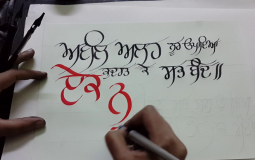 ਅਵਲਿ ਅਲਹ ਨੂਰੁ ਉਪਾਇਆ
ਕੁਦਰਤਿ ਕੇ ਸਭ ਬੰਦੇ॥
ਏਕ ਨੂ